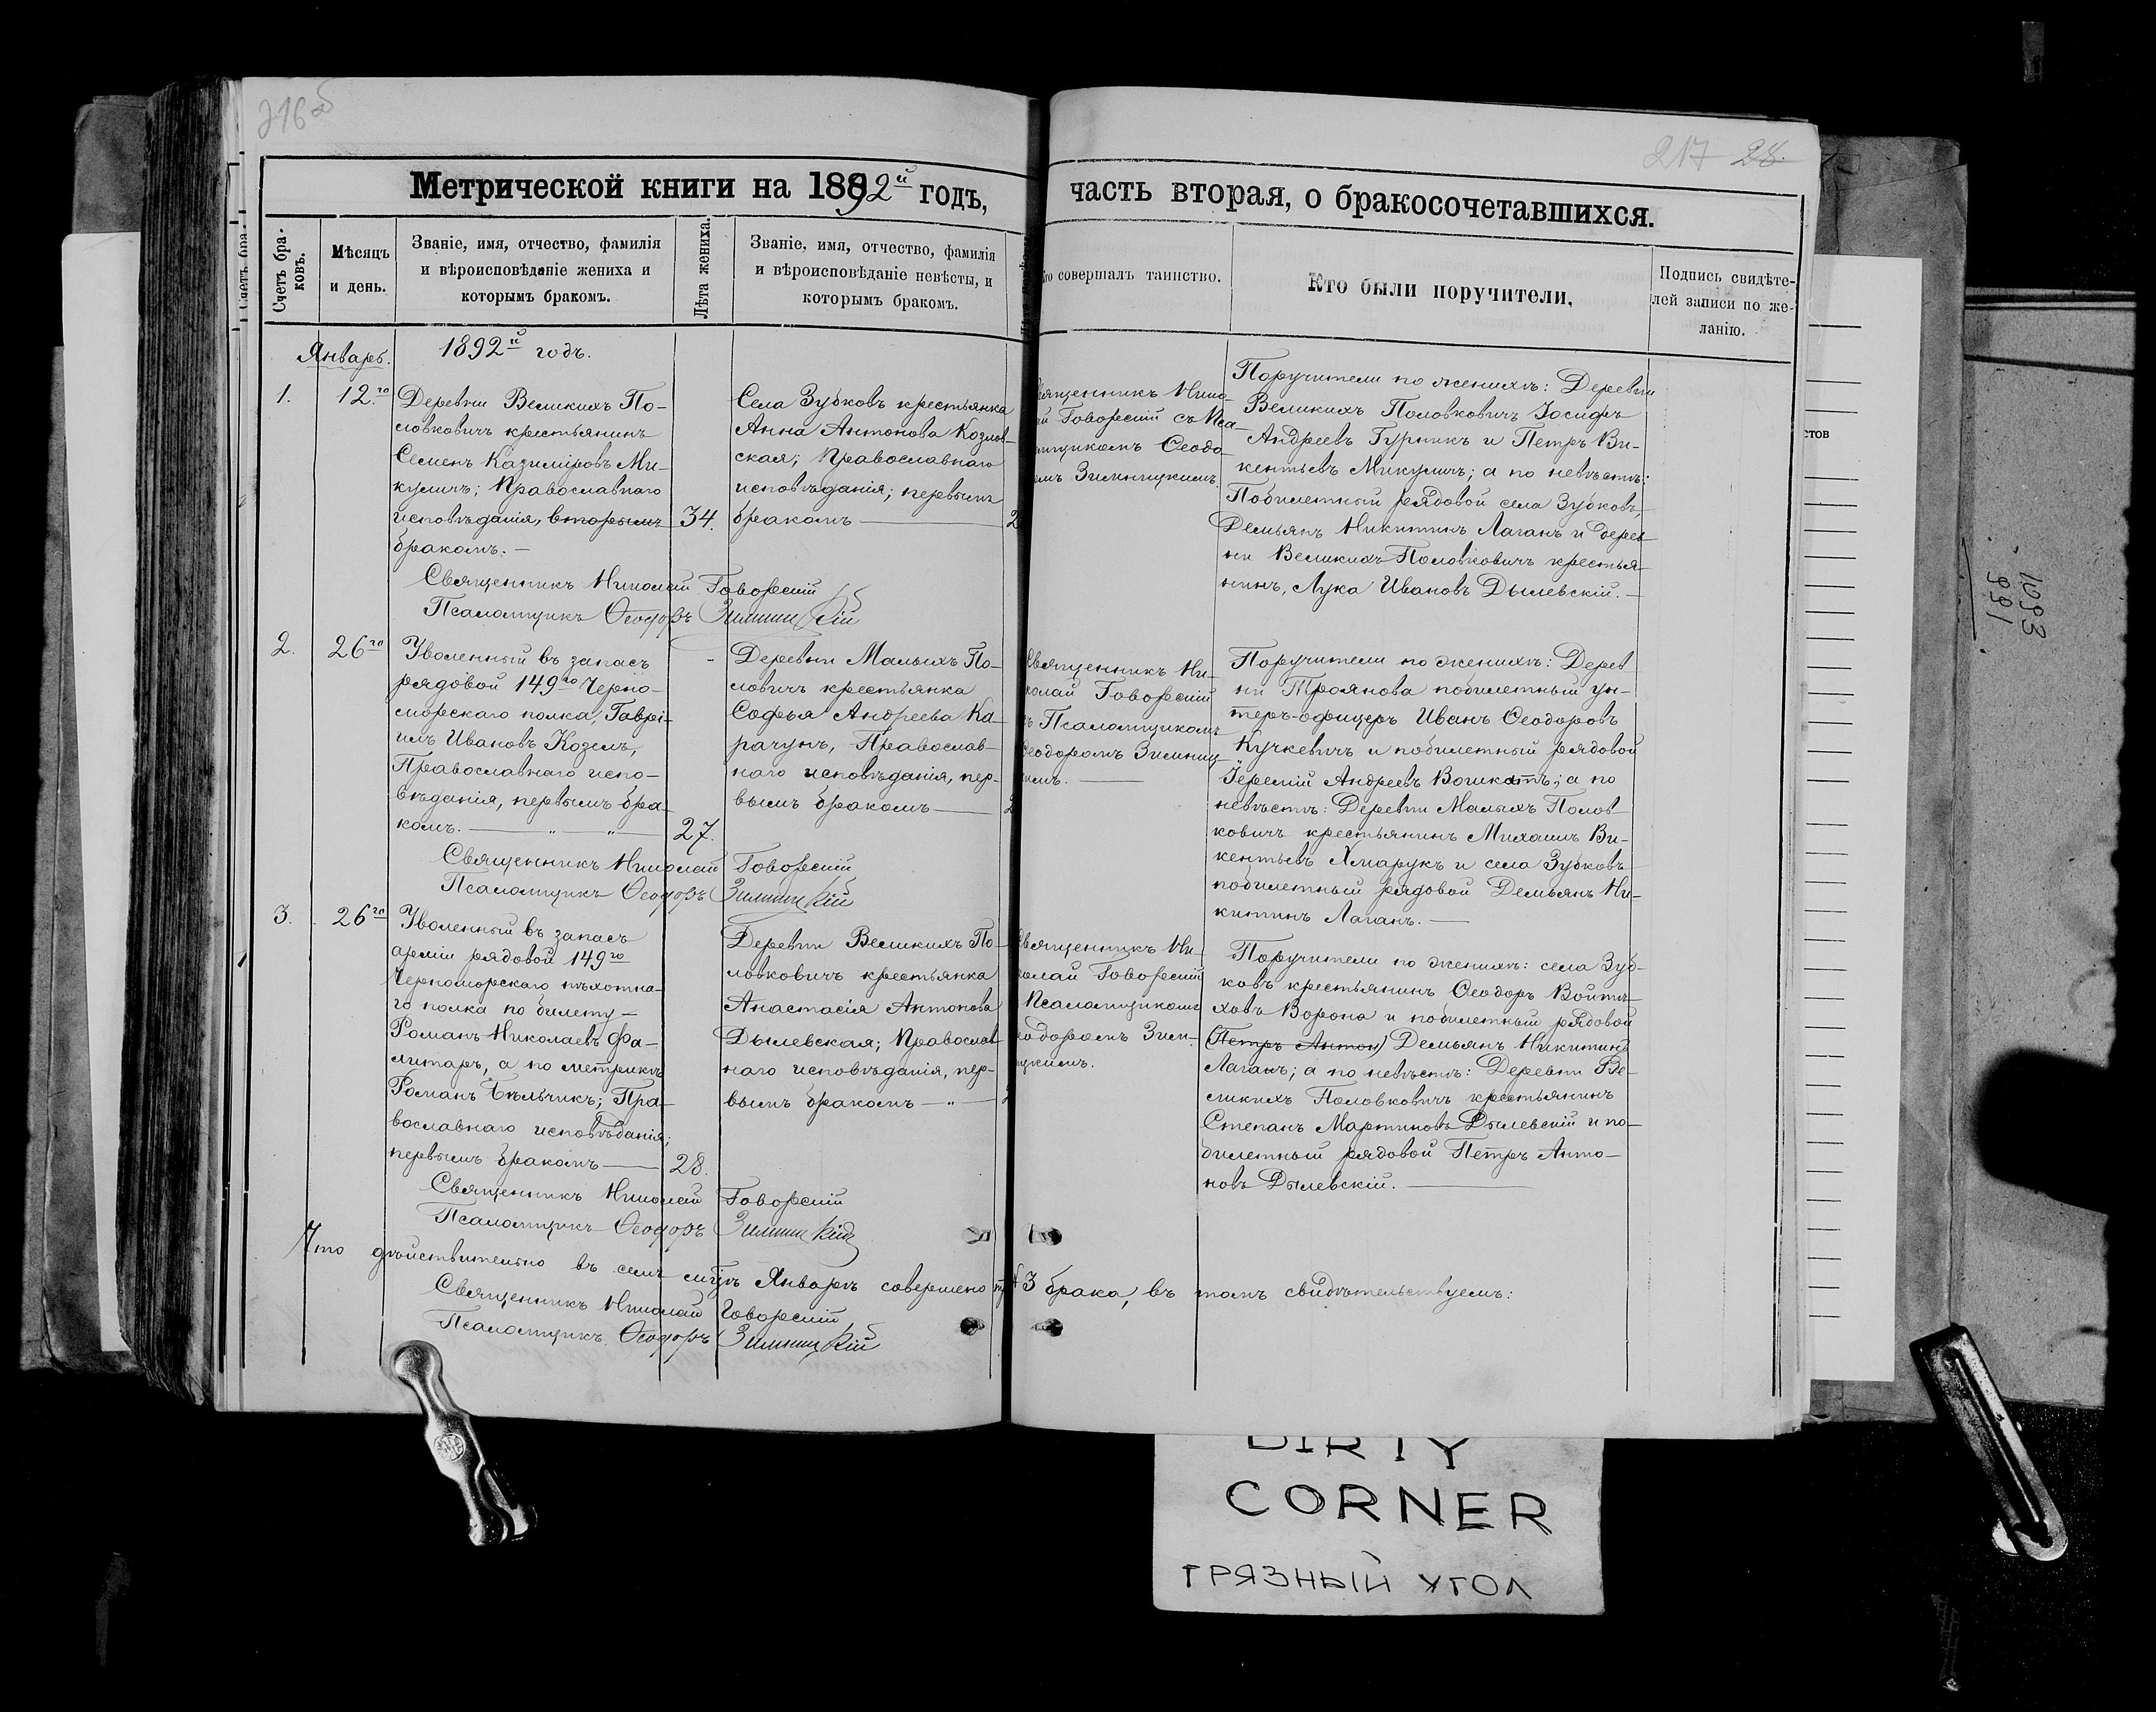 216 об
217 28.
Метрической книги на 1892й годъ,
часть вторая, о бракосочетавшихся.
Счетъ бра-
ковъ.
Мѣсяцъ
и день.
Званіе, имя, отчество, фамилія
и вѣроисповѣданіе жениха и
которымъ бракомъ.
Лѣта жениха.
Званіе, имя, отчество, фамилія
и вѣроисповѣданіе невѣсты, и
которымъ бракомъ.
совершалъ таинство.
Кто были поручители,
Подпись свидѣте-
лей записи по же-
ланію.
Январь.
1892й годъ.
1.
12.го
Деревни Великихъ По-
ловковичъ крестьянинъ
Семенъ Казиміровъ Ми-
куличъ; Православнаго
исповѣданія, вторымъ
бракомъ. —
34.
Села Зубковъ крестьянка
Анна Антонова Козлов-
ская; Православнаго
исповѣданія; первымъ
бракомъ —
2
Священникъ Нико-
ай Говорскій съ Пса-
омщикомъ Ѳеодо-
омъ Зимницкимъ.
Поручители по женихѣ: Деревни
Великихъ Половковичъ Іосифъ
Андреевъ Гурникъ и Петръ Ви-
кентьевъ Микуличъ; а по невѣстѣ:
Побилетный рядовой села Зубковъ,
Демьянъ Никитинъ Лаганъ и дерев-
ни Великихъ Половковичъ крестья-
нинъ, Лука Ивановъ Дылевскій. —
Священникъ Николай Говорскій
Псаломщикъ Ѳеодоръ Зимницкій
2.
26го
Уволенный въ запасъ
рядовой 149го Черно-
морскаго полка, Гаврі-
илъ Ивановъ Козелъ,
Православнаго испо-
вѣданія, первымъ бра-
комъ. — „ — „ —
27.
Деревни Малыхъ По-
ловичъ крестьянка
Софья Андреева Ка-
рачунъ, Православ-
наго исповѣданія, пер-
вымъ бракомъ —
2
Священникъ Ни-
колай Говорскій
ъ Псаломщикомъ
Ѳеодоромъ Зимниц-
имъ. —
Поручители по женихѣ: Дерев
ни Троянова побилетный ун-
теръ-офицеръ Иванъ Ѳеодоровъ
Кучкевичъ и побилетный рядовой
Іеремій Андреевъ Вошкать; а по
невѣстѣ: Деревни Малыхъ Полов-
ковичъ крестьянинъ Михаилъ Ви-
кентьевъ Хмарукъ и села Зубковъ
побилетный рядовой Демьянъ Ни-
китинъ Лаганъ. —
Священникъ Николай Говорскій
Псаломщикъ Ѳеодоръ Зимницкій
3.
26го
Уволенный въ запасъ
арміи рядовой 149го
Черноморскаго пѣхотна-
го полка по билету —
Романъ Николаевъ Фа-
литаръ, а по метрикѣ
Романъ Бѣльчикъ; Пра-
вославнаго исповѣданія;
первымъ бракомъ —
28.
Деревни Великихъ По-
ловковичъ крестьянка
Анастасія Антонова
Дылевская; Православ-
наго исповѣданія, пер-
вымъ бракомъ — „ —
2
Священникъ Ни-
колай Говорскій
Псаломщикомъ
еодоромъ Зим-
ицкимъ.
Поручители по женихѣ: села Зуб-
ковъ крестьянинъ Ѳеодоръ Войтѣ-
ховъ Ворона и побилетный рядовой
(Петръ Антон) Демьянъ Никитинъ
Лаганъ; а по невѣстѣ: Деревни Ве-
ликихъ Половковичъ крестьянинъ
Степанъ Мартиновъ Дылевскій и по-
билетный рядовой Петръ Анто-
новъ Дылевскій. —
Священникъ Николай Говорскій
Псаломщикъ Ѳеодоръ Зимницкій
Что дѣйствительно въ семъ мцѣ Январѣ совершено 3 брака, въ томъ свидѣтельствуемъ:
Священникъ Николай Говорскій
Псаломщикъ Ѳеодоръ Зимницкій
стов
1093
991
DIRTY
CORNER
ГРЯЗНЫЙ УГОЛ